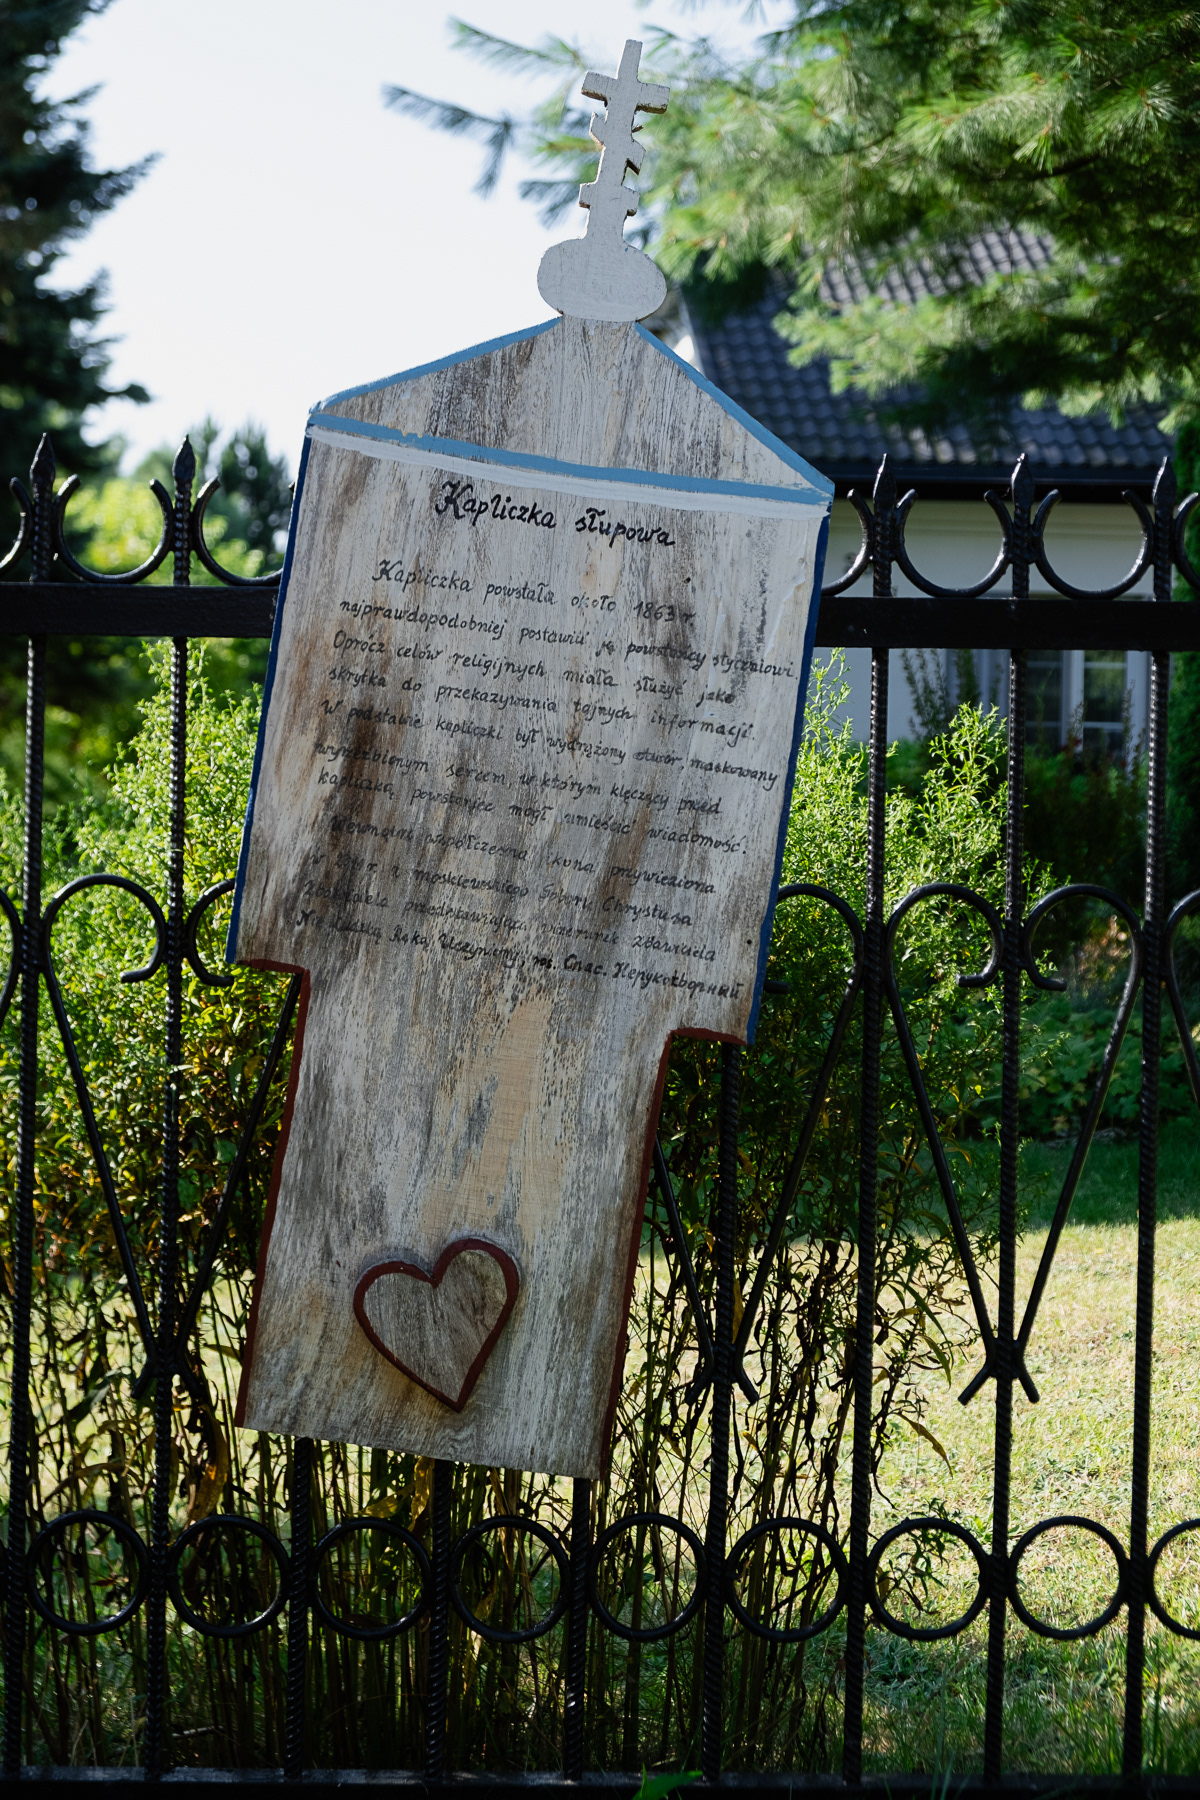 Kapliczka słupowa
Kapliczka powstała około 1863 r.
najprawdopodobniej postawili ją powstańcy styczniowi
Oprócz celów religijnych miała służyć jako
skrytka do przekazywania tajnych informacji.
W podstawie kapliczki był wydrążony otwór, maskowany
wyrzeźbionym sercem, w którym klęczący przed
kapliczką powstaniec mógł umieścić wiadomość.
Wewnątrz współczesna ikona przywieziona
w r. z moskiewskiego Soboru Chrystusa
Zbawiciela przedstawiająca wizerunek Zbawiciela
Nie Ludzką Ręką Uczyniony, Спас. Нерукотворный